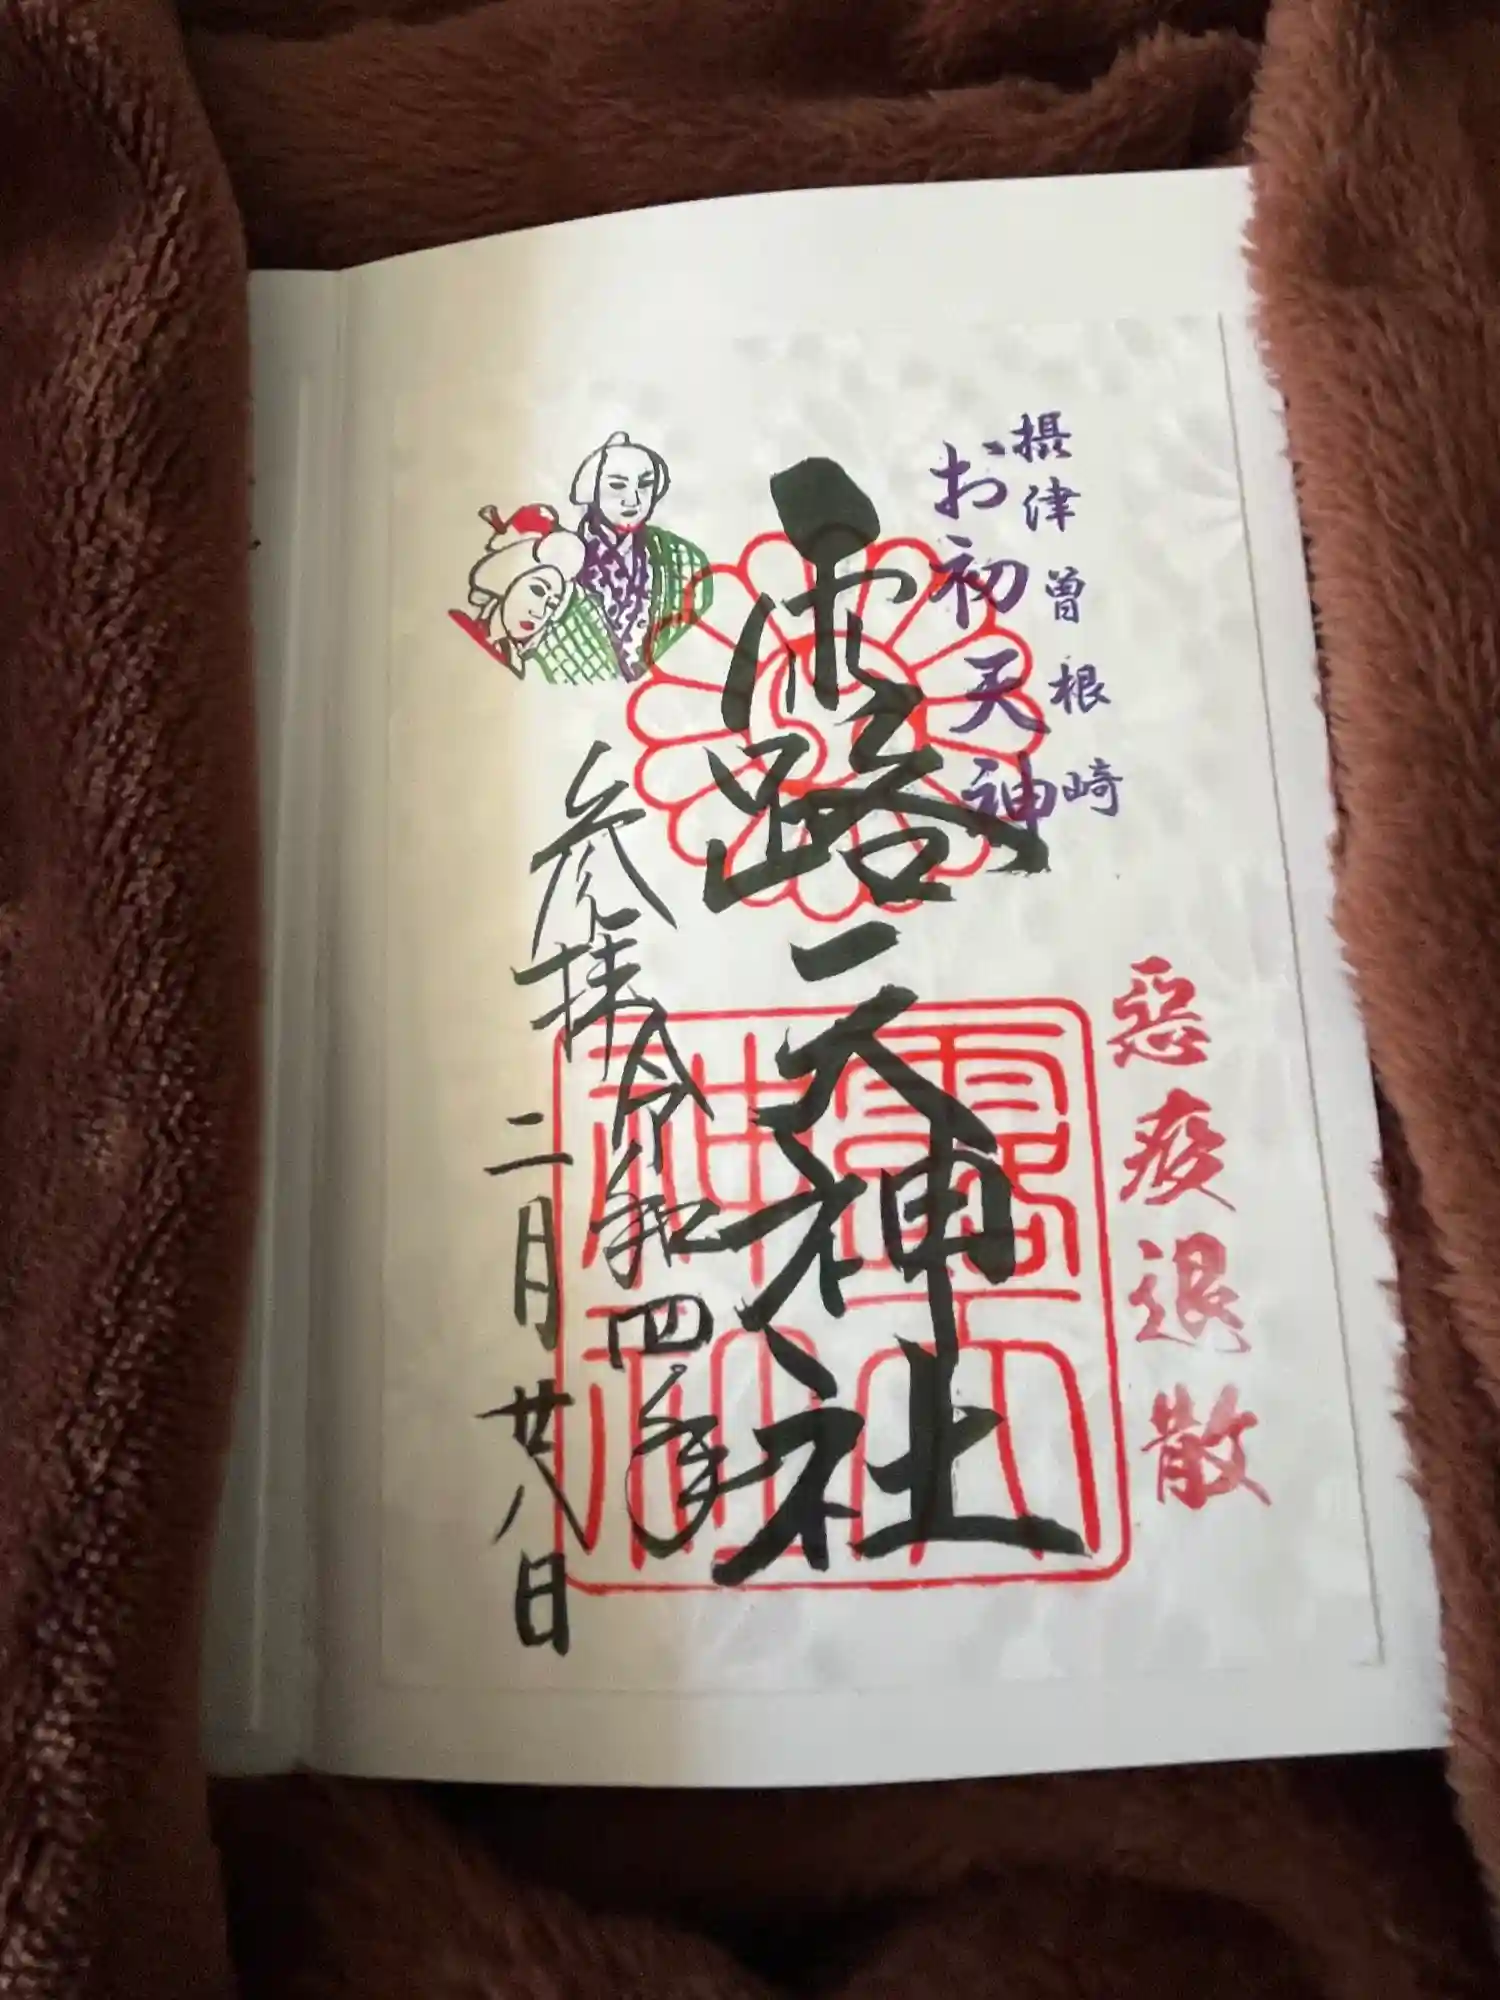 摂津曽根崎
お初天神
惡疫退散
露天神社
参拝令和四年
二月廿八日
露天
神社